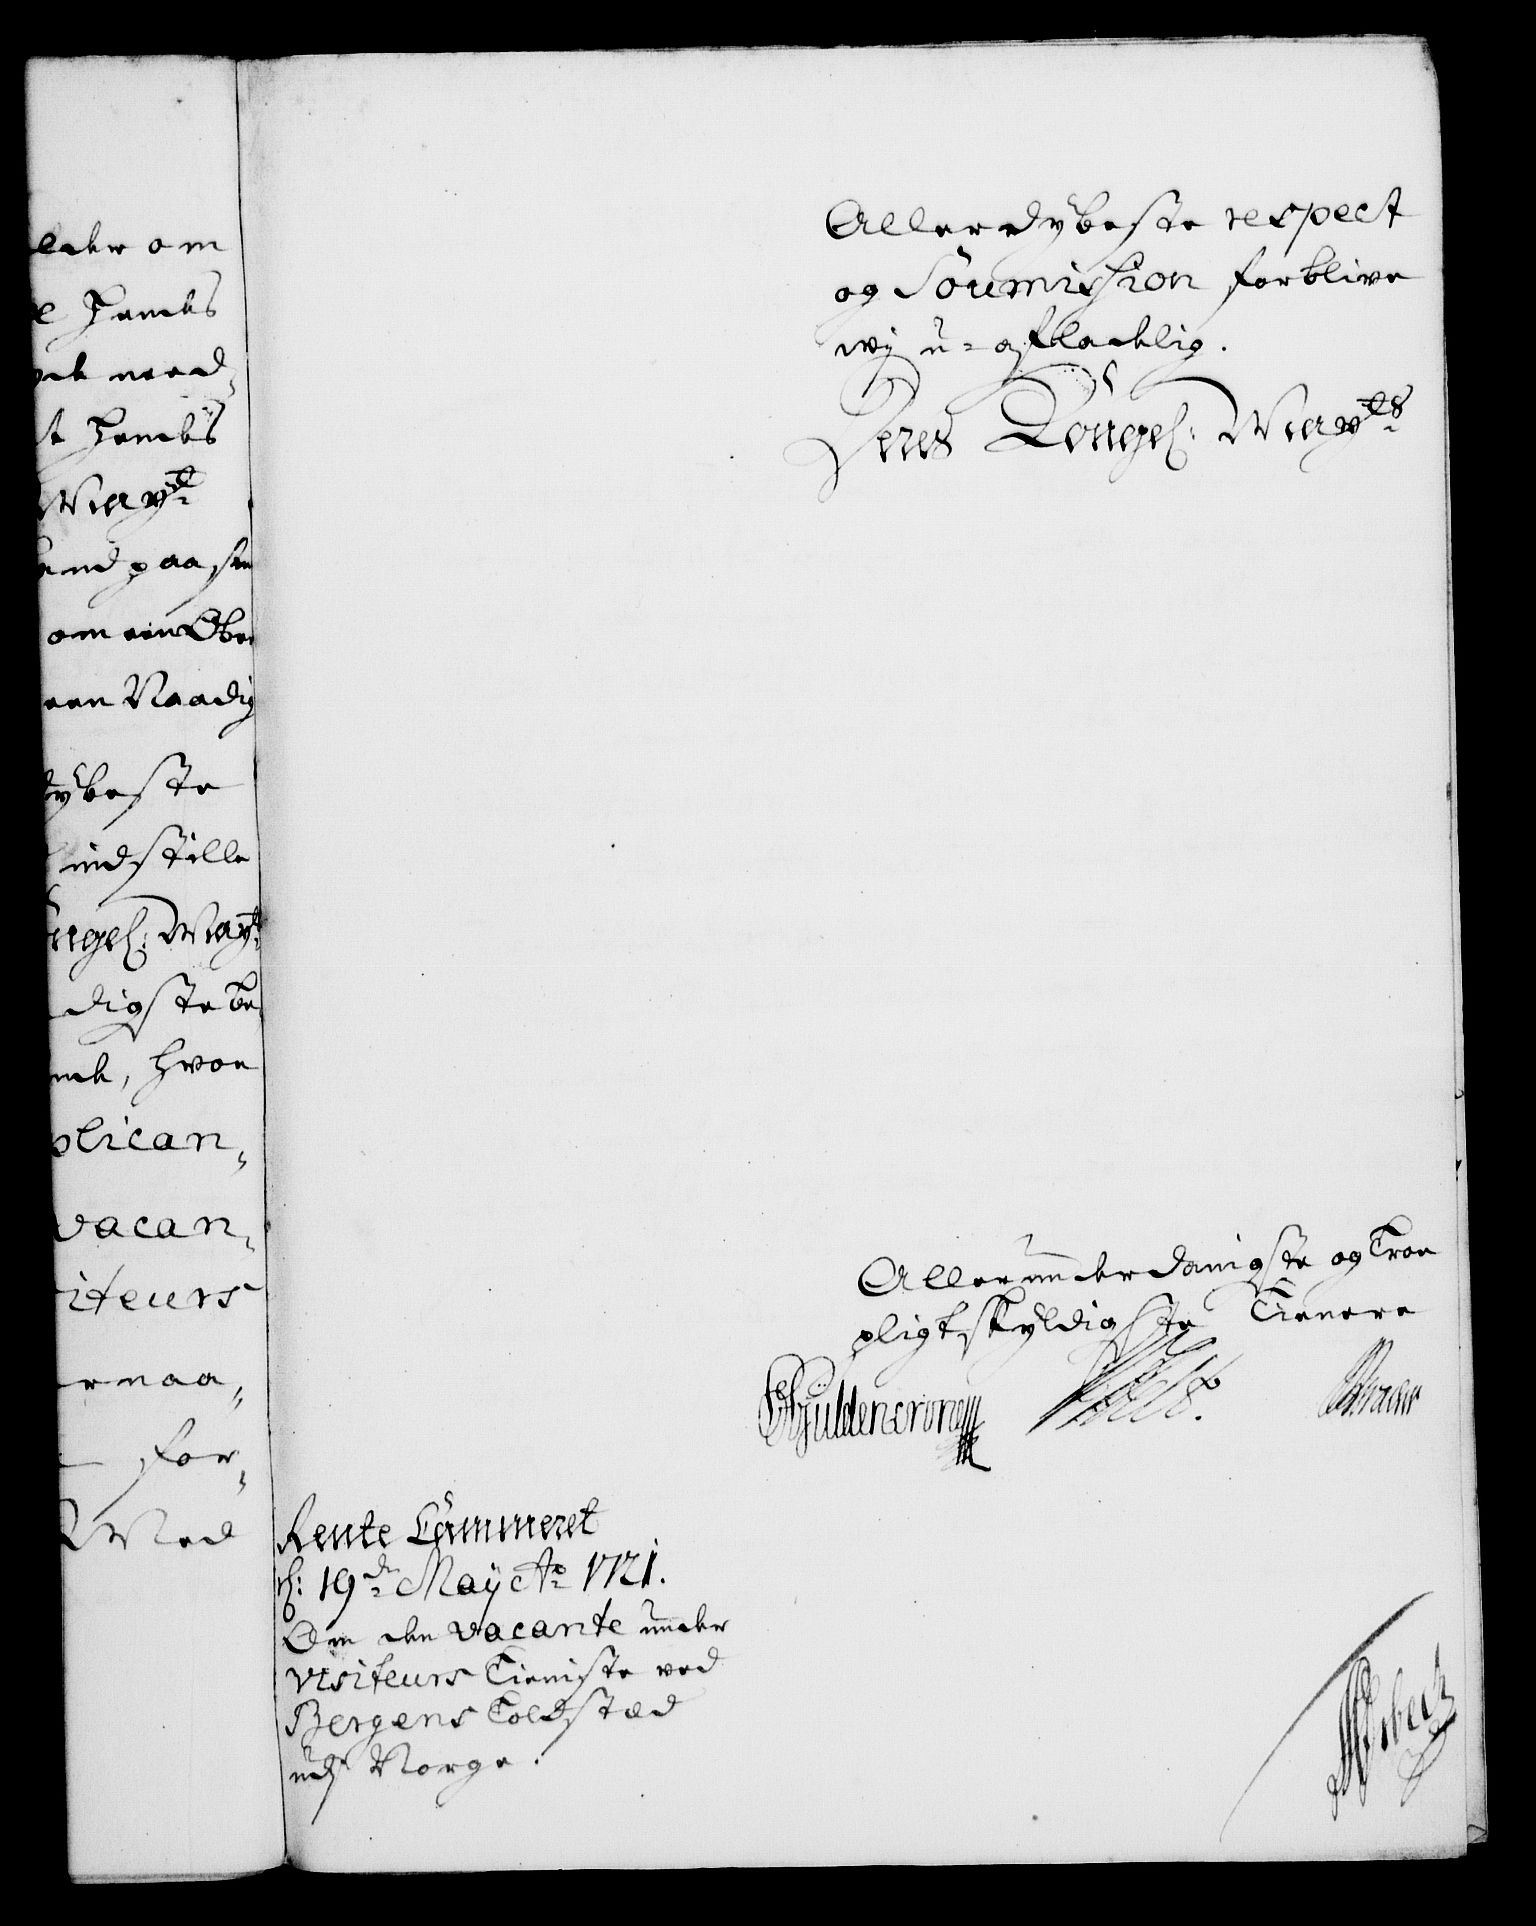 elder om
e hands
nød,
t hands
May:tt
and paa sin
om een Ober
een Naadig
dybeste
indstille
ongel: May:t
digste be
ende, hvor
plican,
vacan,
iteurs
ernaa,
for,
Med
Allerdybeste respect
og Soumission forblive
wij u-afladelig.
Deres Kongel: May:ts
Allerunderdanigste og Troe
pligtskyldigste Tienere
CGyldencrone
Rente Cammeret
d: 19de Maij Ao 1721.
Om den vacante under
Visiteurs Tieniste ved
Bergens Toldsted
udj Norge.